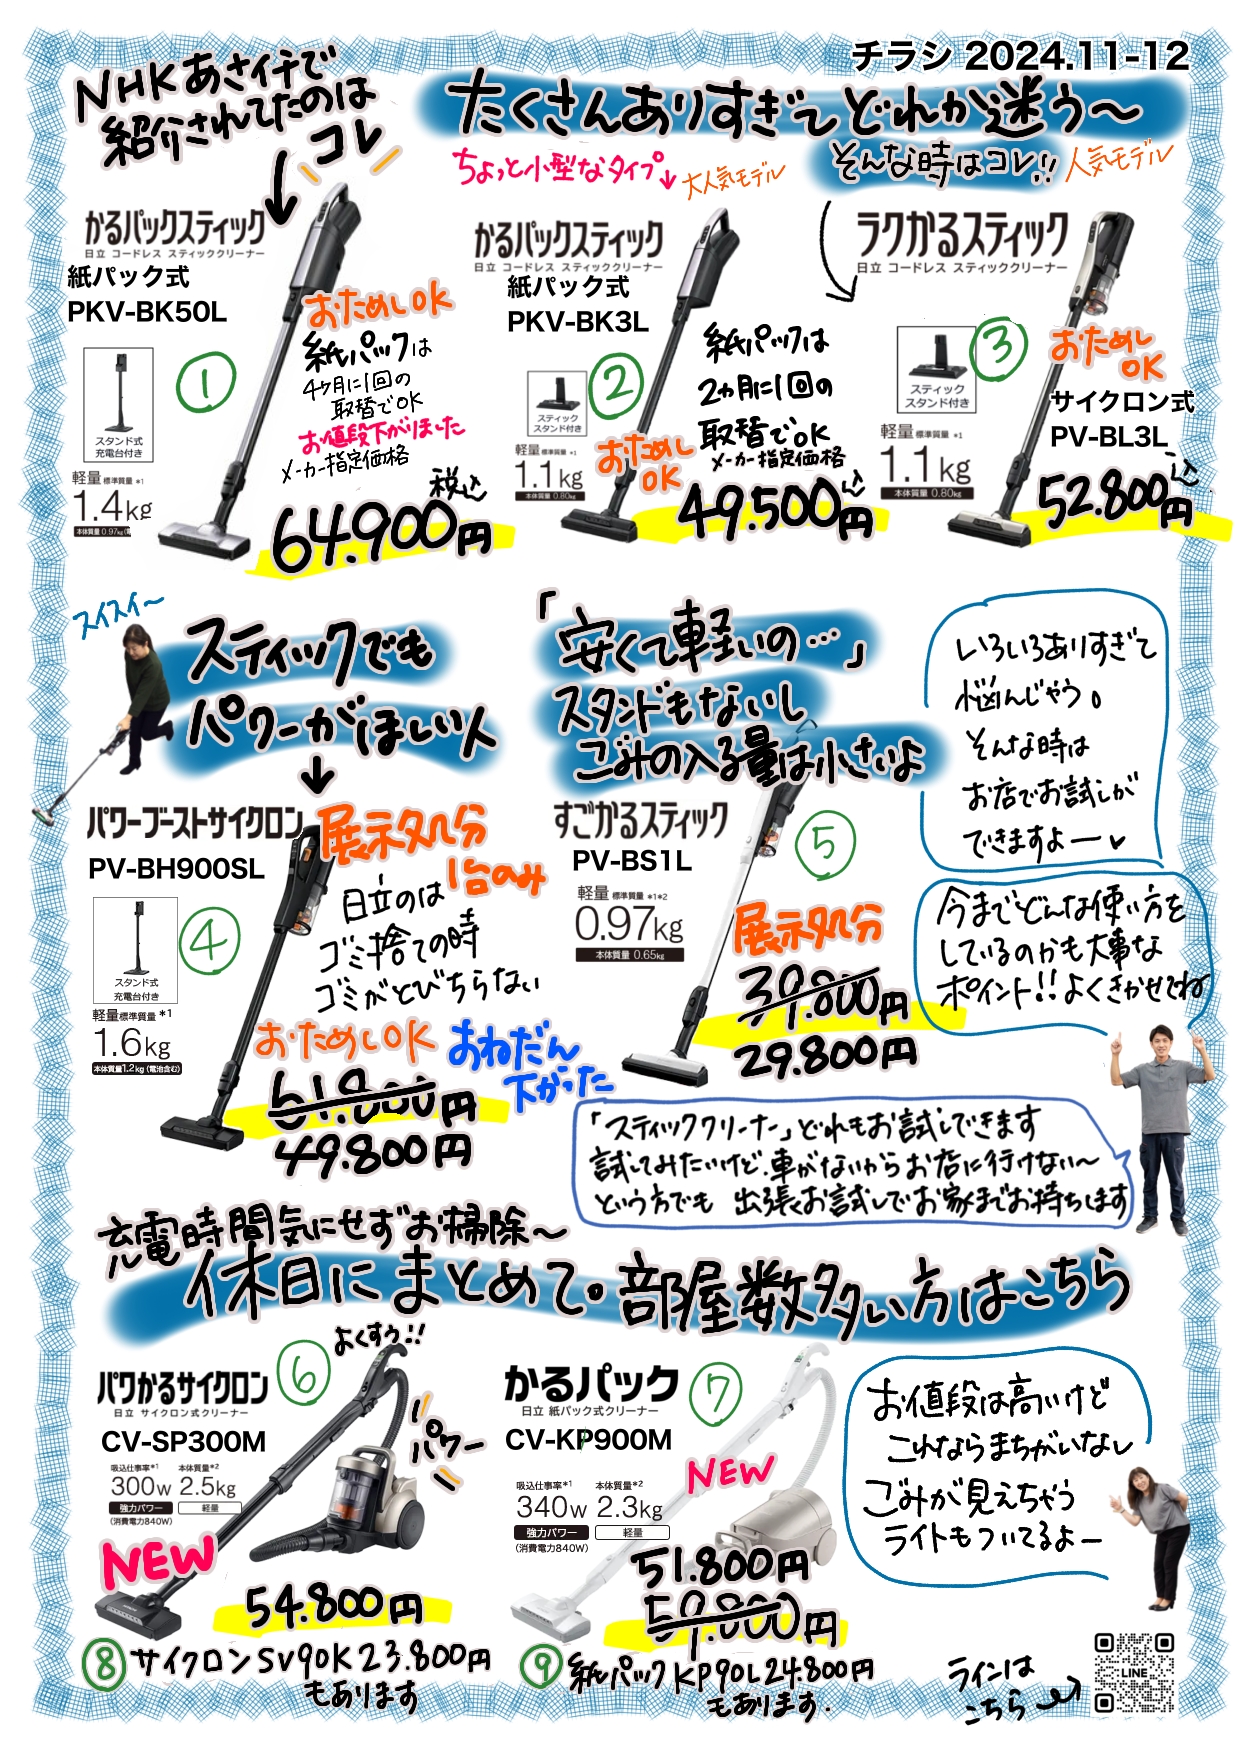 チラシ 2024.11-12
NHKあさイチで
紹介されてたのは
コレ
たくさんありすぎてどれか迷う〜
そんな時はコレ!!
人気モデル
ちょっと小型なタイプ
大人気モデル
かるパックスティック
日立 コードレス スティッククリーナー
紙パック式
PKV-BK50L
①
スタンド式
充電台付き
軽量 標準質量 *1
1.4kg
本体質量 0.97kg
おためしOK
紙パックは
4ヶ月に1回の
取替でOK
お値段下がりました
メーカー指定価格
税込
64.900円
かるパックスティック
日立 コードレス スティッククリーナー
紙パック式
PKV-BK3L
②
スティック
スタンド付き
軽量 標準質量 *1
1.1kg
本体質量 0.80kg
おためし
OK
紙パックは
2ヵ月に1回の
取替でOK
メーカー指定価格
込
49.500円
ラクかるスティック
日立 コードレス スティッククリーナー
③
スティック
スタンド付き
軽量 標準質量 *1
1.1kg
本体質量 0.80kg
おためし
OK
サイクロン式
PV-BL3L
込
52.800円
スイスイ〜
スティックでも
パワーがほしい人
パワーブーストサイクロン
PV-BH900SL
④
スタンド式
充電台付き
軽量 標準質量 *1
1.6kg
本体質量1.2kg (電池含む)
展示処分
1台のみ
日立のは
ゴミ捨ての時
ゴミがとびちらない
おためしOK
おねだん
下がった
61.800円
49.800円
「安くて軽いの…」
スタンドもないし
ごみの入る量は小さいよ
すごかるスティック
PV-BS1L
⑤
軽量 標準質量 *1*2
0.97kg
本体質量 0.65kg
展示処分
39.800円
29.800円
いろいろありすぎて
悩んじゃう。
そんな時は
お店でお試しが
できますよー♥
今までどんな使い方を
しているのかも大事な
ポイント!!よくきかせてね
「スティッククリーナー」どれもお試しできます
試してみたいけど、車がないからお店に行けない〜
という方でも 出張お試しでお家までお持ちします
充電時間気にせずお掃除〜
休日にまとめて。部屋数多い方はこちら
パワかるサイクロン
日立 サイクロン式クリーナー
CV-SP300M
⑥
よくすう!!
パワー
吸込仕事率*1 本体質量*2
300w 2.5kg
強力パワー 軽量
(消費電力840W)
NEW
54.800円
かるパック
日立 紙パック式クリーナー
CV-KP900M
⑦
吸込仕事率*1 本体質量*2
340w 2.3kg
強力パワー 軽量
(消費電力840W)
NEW
51.800円
59.800円
お値段は高いけど
これならまちがいなし
ごみが見えちゃう
ライトもついてるよー
⑧サイクロンSV90K 23.800円
もあります
⑨紙パックKP90L 24.800円
もあります.
ラインは
こちら
LINE